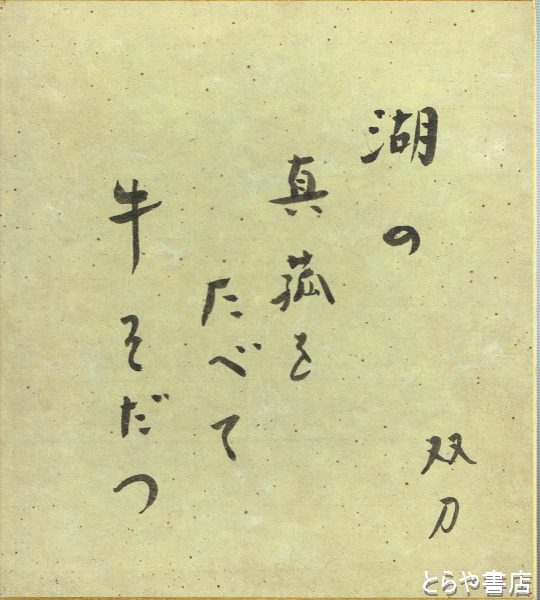 湖の
真菰を
たべて
牛そだつ
双刀
とらや書店